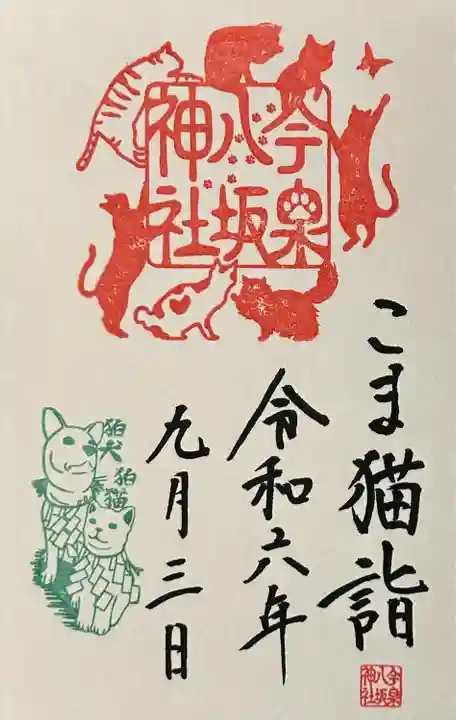 今泉
八坂
神社
こま猫詣
令和六年
九月三日
狛犬
狛猫
今泉
八坂
神社